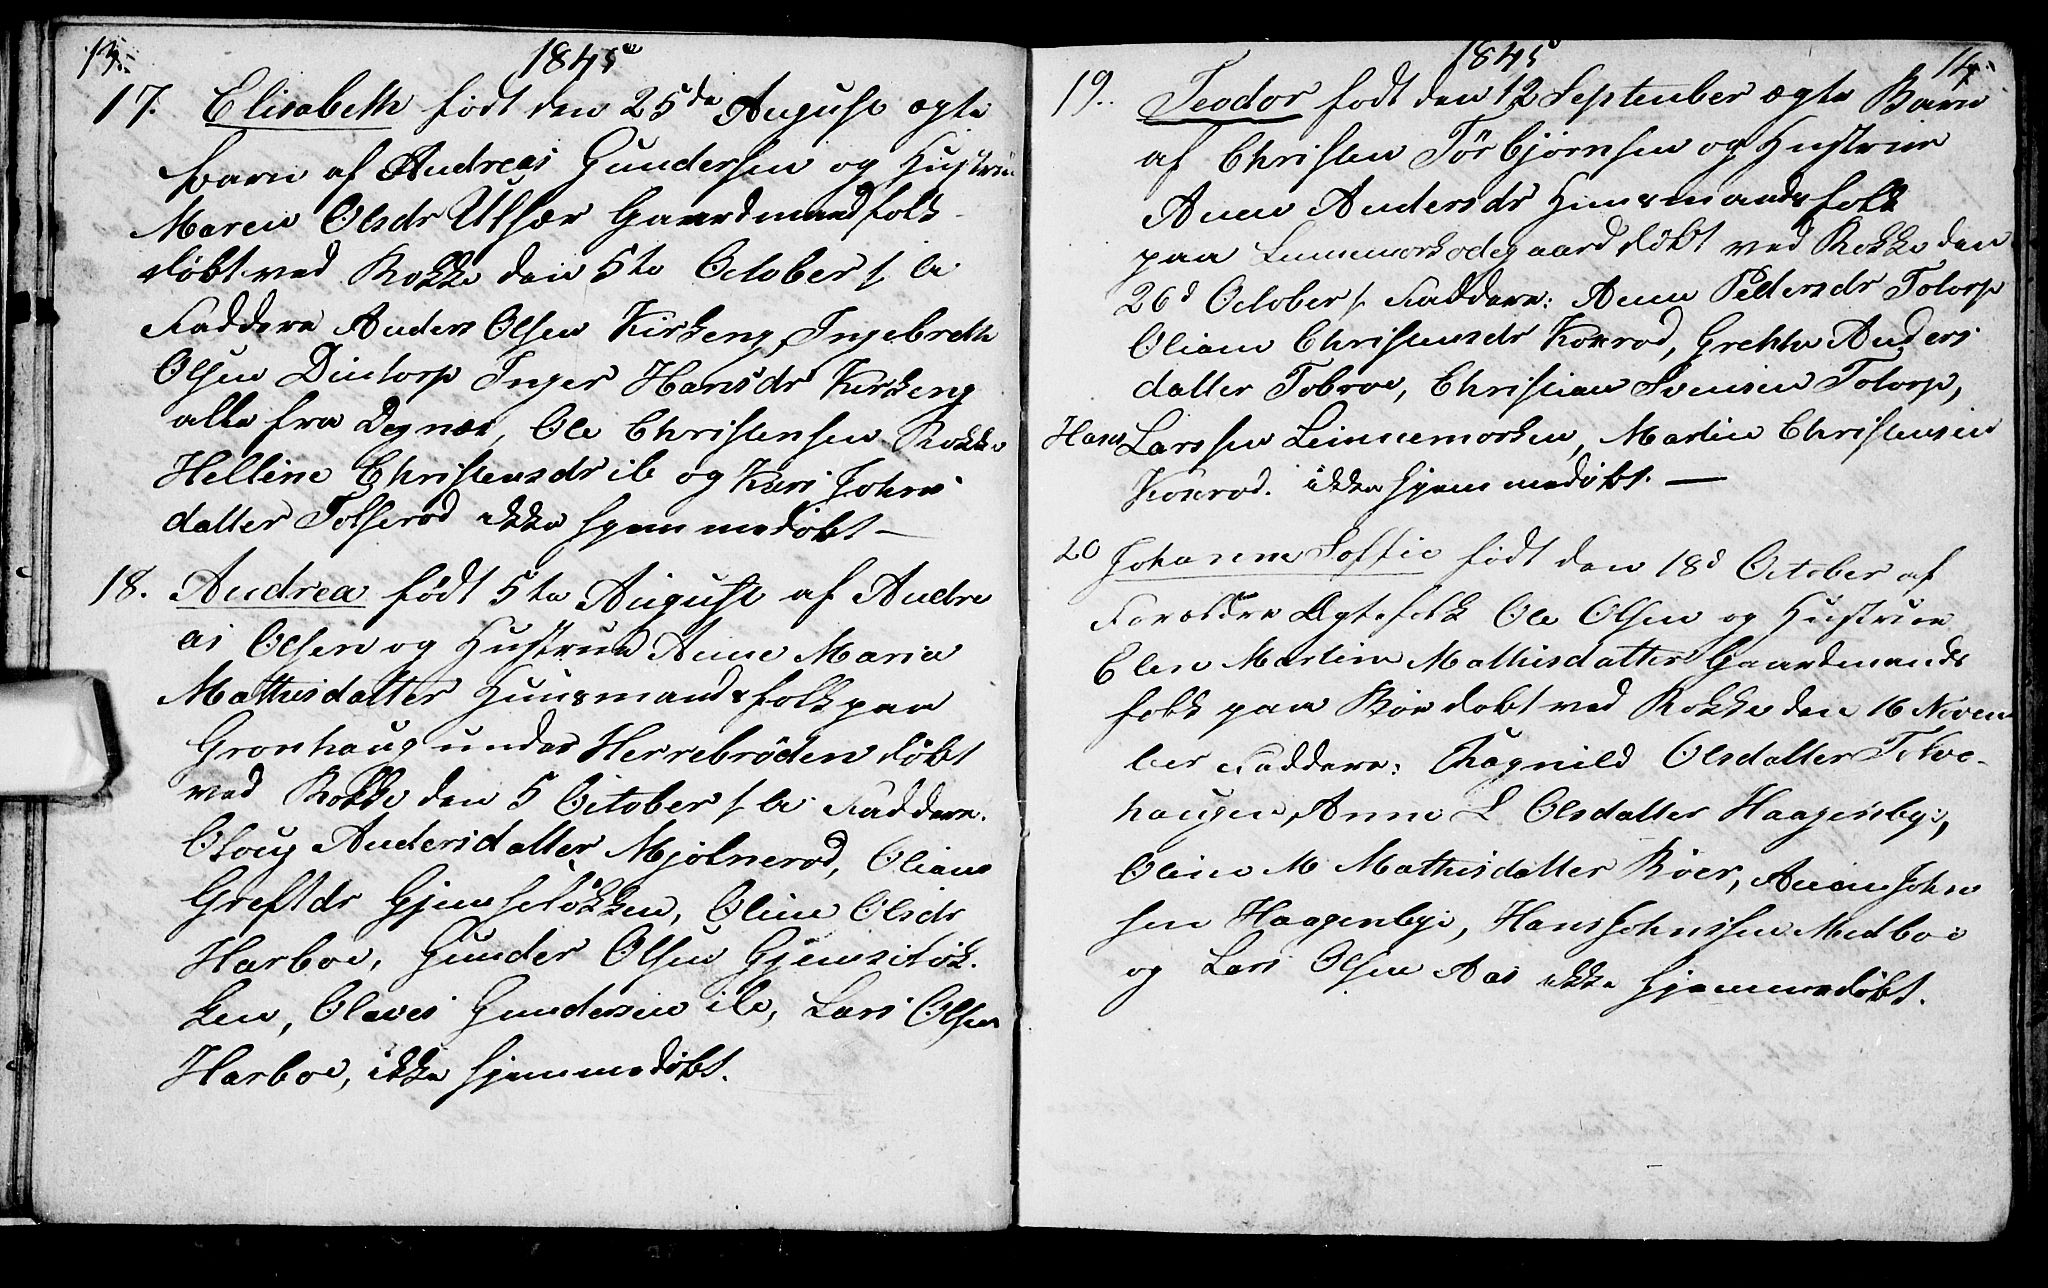 13.
1845
17. Elisabeth født den 25de August ægte
barn af Andreas Gundersen og Hustrue
Maren Olsdr Ulsær Gaardmandfolk
døbt ved Rokke den 5te October
Faddere Anders Olsen Kirkeng, Ingebreth
Olsen Dintorp Inger Hansdr Kirkeng
alle fra Degnæs, Ole Christensen Rokke
Helline Christensdr ib og Kari Johns
datter Tolserød ikke hjemmedøbt —
18. Andrea født 5te August af Andre
as Olsen og Hustrue Anne Maria
Mathisdatter Huusmandsfolk paa
Gronhaug under Herrebrøden døbt
ved Rokke den 5 October Faddere.
Oloug Andersdatter Mjølnerød, Oliane
Greftdr Gjemseløkken, Oline Olsdr
Harboe, Gunder Olsen Gjemseløk-
ken, Olaves Gundersen ib, Lars Olsen
Harboe, ikke hjemmedøbt.
1845
14.
19. Teodor født den 12 September ægte Barn
af Christen Törbjørnsen og Hustrue
Anne Andersdr Huusmandsfolk
paa Lunemorkødegaard døbt ved Rokke den
26d October Faddere: Anne Pedersdr Totorp
Oliane Christensdr Konrød, Grethe Anders
datter Tobroe, Christian Svensen Totorp,
Hans Larssen Leinnemorken, Martin Christensen
Konrød. ikke hjemmedøbt. —
20 Johanne Soffie født den 18d October af
Forældre Ægtefolk Ole Olsen og Hustrue
Elen Martine Mathisdatter Gaardmands
folk paa Bøe døbt ved Rokke den 16 Novem
ber Faddere: Ragnild Olsdatter
haugen, Anne L Olsdatter Haagenbye,
Oline M Mathisdatter Bøer, Anian John
sen Haagenbye, Hans Johnssen Medboe
og Lars Olsen Aas ikke hjemmedøbt.